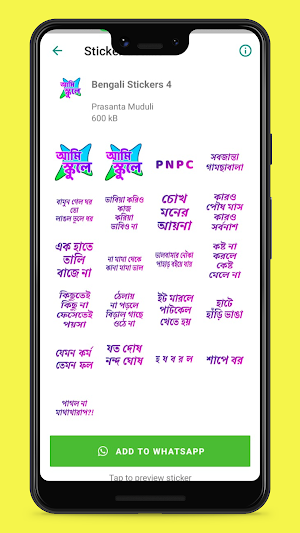 Sticke
Bengali Stickers 4
Prasanta Muduli
600 kB
আমি
স্কুলে
আমি
স্কুলে
PNPC
সবজান্তা
গামছাবালা
বামুন গেল ঘর
তো
লাঙল তুলে ধর
ভাবিয়া করিও
কাজ
করিয়া
ভাবিও না
চোখ
মনের
আয়না
কারও
পৌষ মাস
কারও
সর্বনাশ
এক হাতে
তালি
বাজে না
না মামা থেকে
কানা মামা ভাল
ভালবাসার নৌকা
পাহাড় বইয়ে যায়
কষ্ট না
করলে
কেষ্ট
মেলে না
কিছুতেই
কিছু না
ফেসেতেই
পয়সা
ঠেলায়
না পড়লে
বিড়াল গাছে
ওঠে না
ইট মারলে
পাটকেল
খেতে হয়
হাটে
হাঁড়ি ভাঙা
যেমন কর্ম
তেমন ফল
যত দোষ
নন্দ ঘোষ
হ য ব র ল
শাপে বর
পাগল না
মাথাখারাপ?!
ADD TO WHATSAPP
Tap to preview sticker